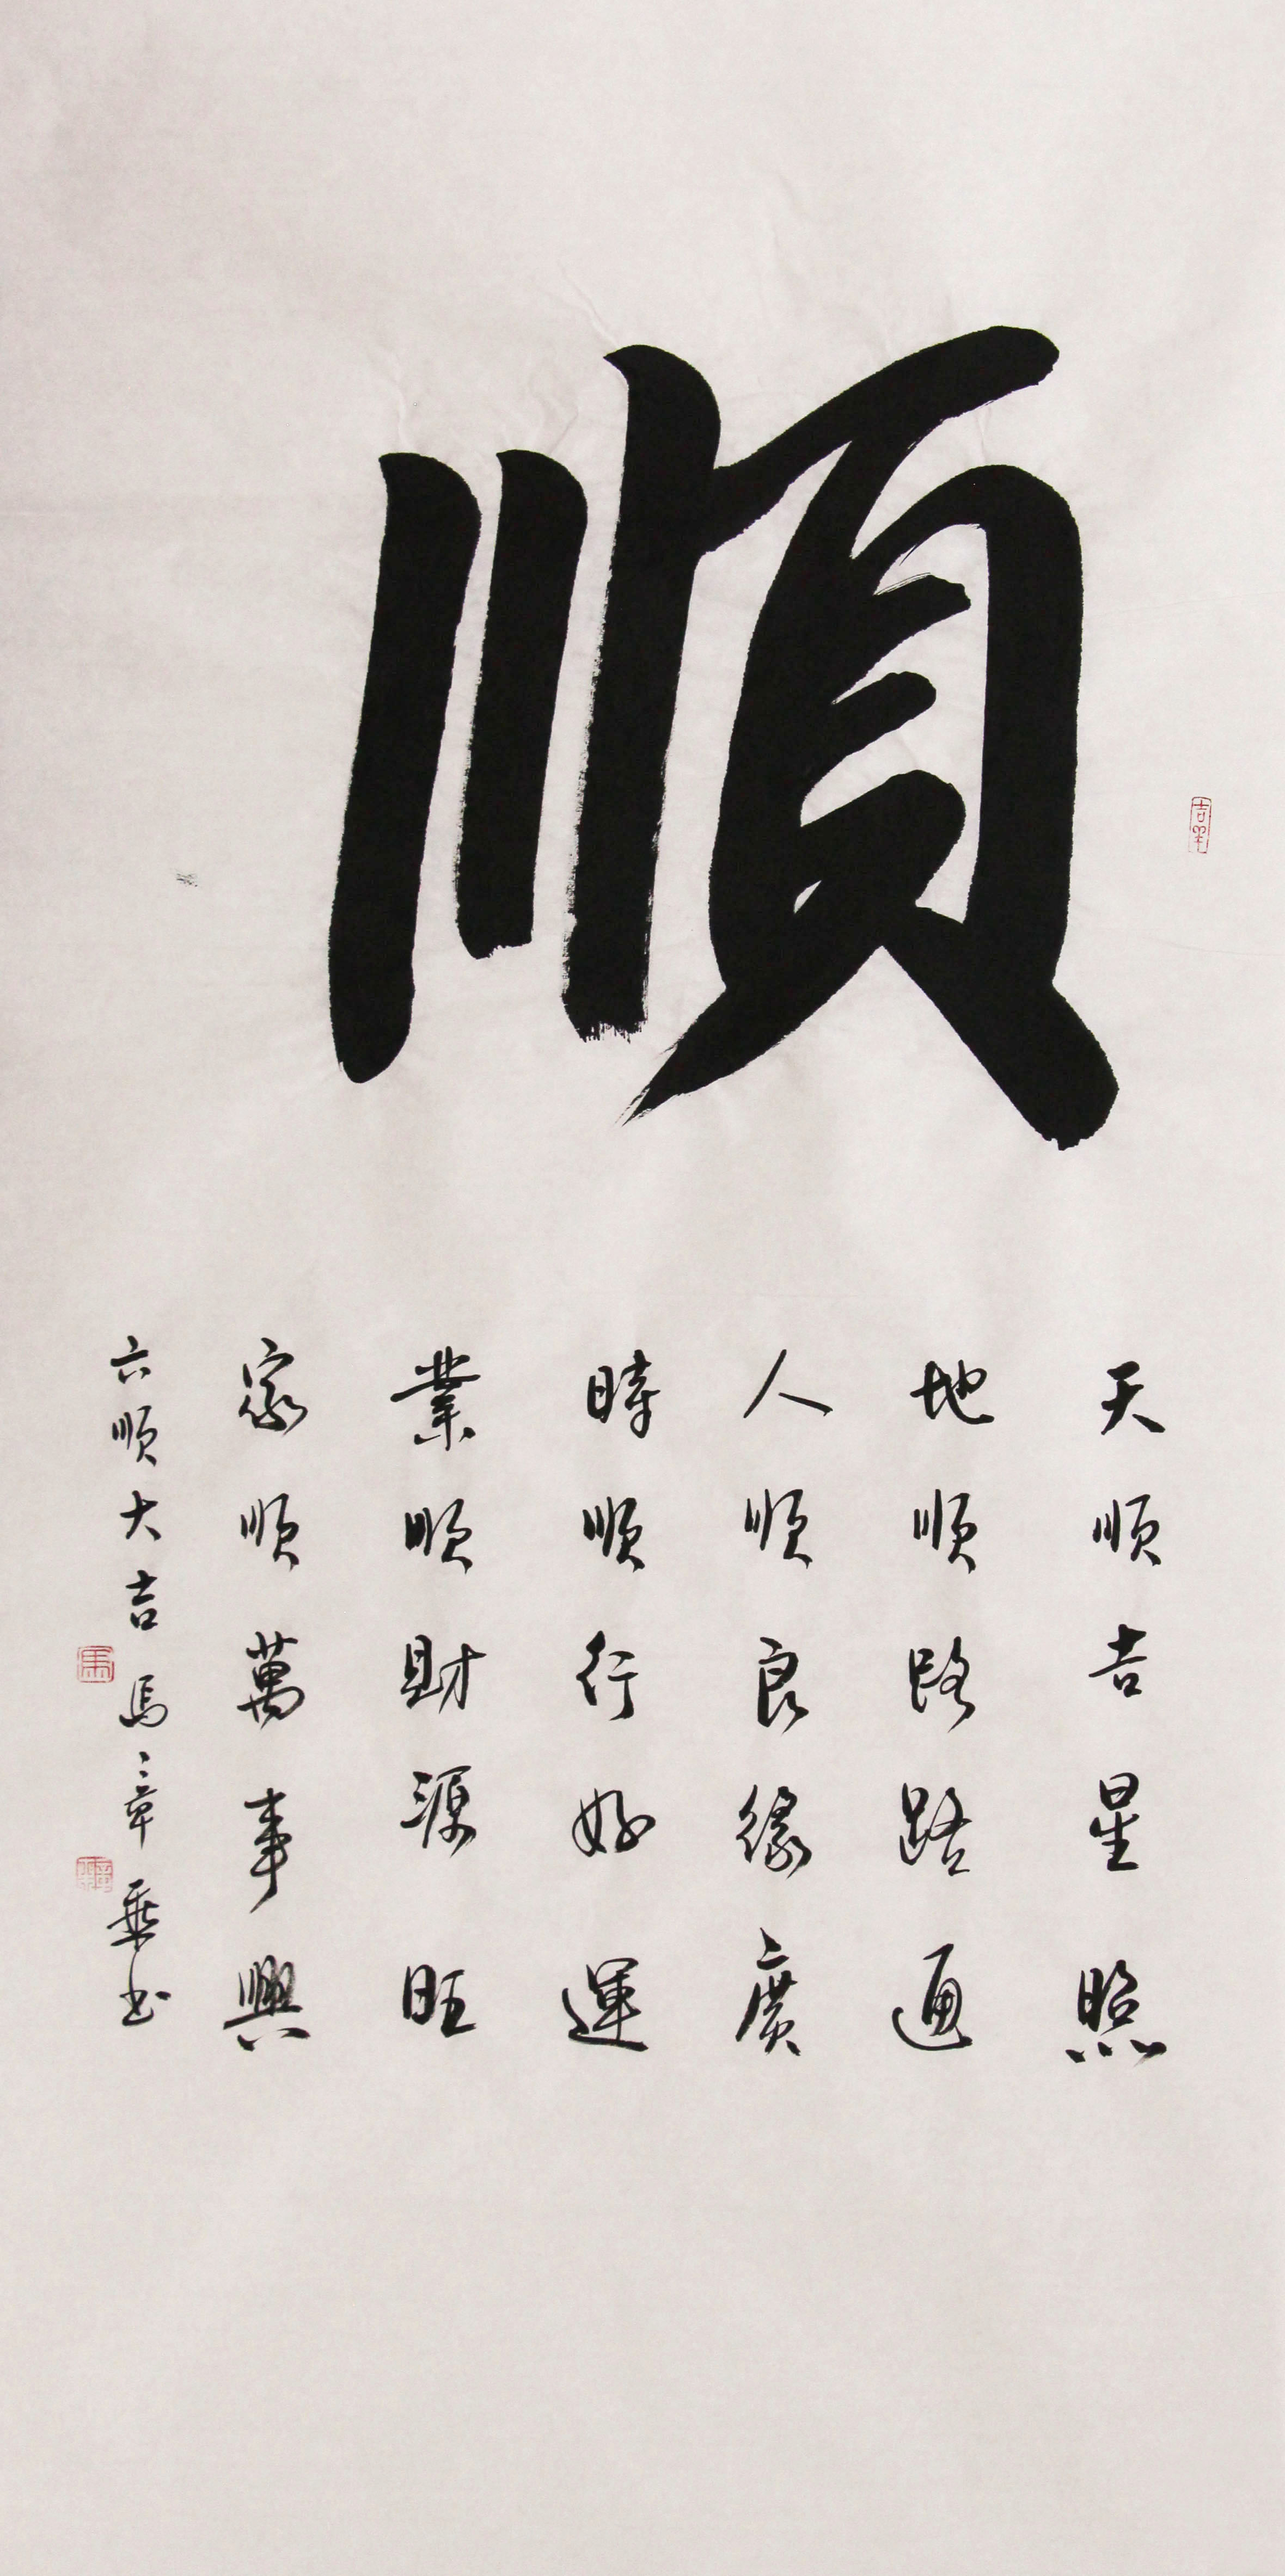 順
吉羊
天順吉星照
地順路路通
人順良緣廣
時順行好運
業順財源旺
家順萬事興
六順大吉 馬 书
馬